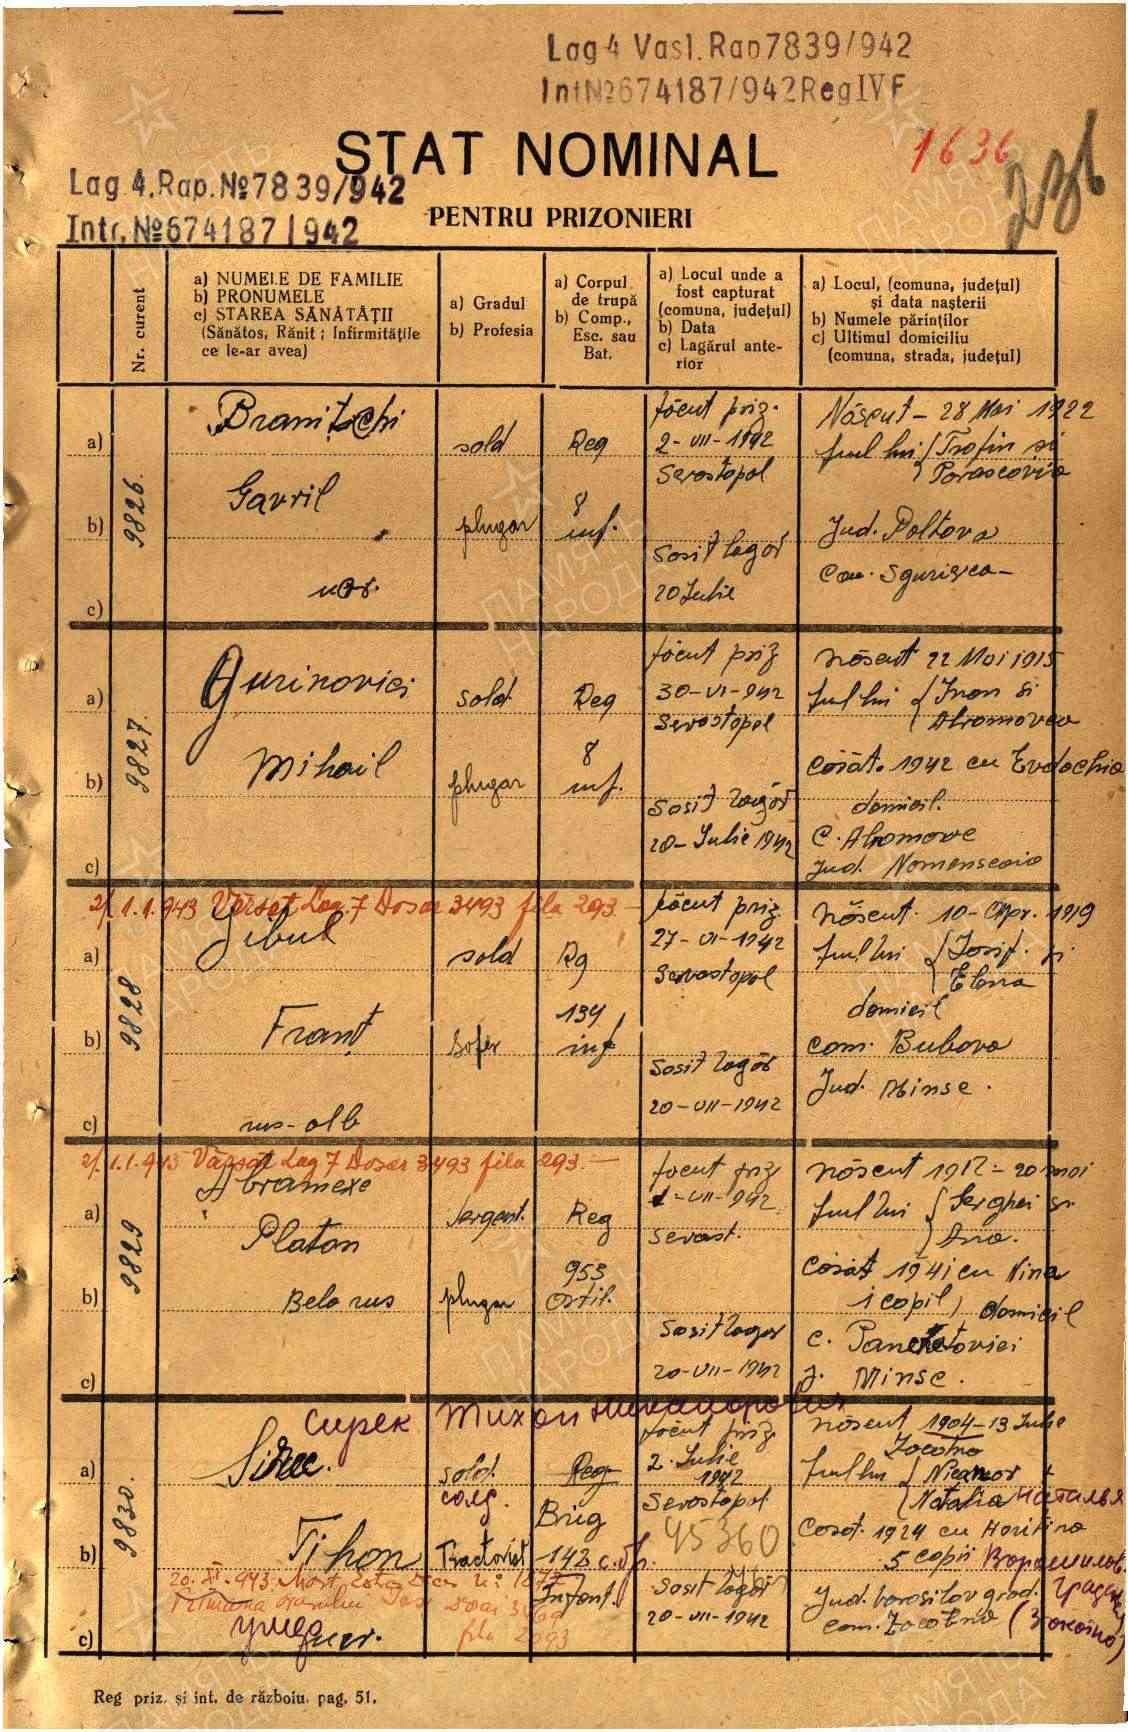 Lag 4 Vasl. Rap 7839/942
Int№674187/942 Reg IV F
STAT NOMINAL
1636
236
Lag 4. Rap. №7839/942
Intr. №674187/942
PENTRU PRIZONIERI
Nr. curent
a) NUMELE DE FAMILIE
b) PRONUMELE
c) STAREA SĂNĂTĂȚII
(Sănătos, Rănit ; Infirmitățile
ce le-ar avea)
a) Gradul
b) Profesia
a) Corpul
de trupă
b) Comp.,
Esc. sau
Bat.
a) Locul unde a
fost capturat
(comuna, județul)
b) Data
c) Lagărul ante-
rior
a) Locul, (comuna, județul)
și data nașterii
b) Numele părinților
c) Ultimul domiciliu
(comuna, strada, județul)
9826.
a)
b)
c)
Branițchi
Gavril
ucr.
sold
plugar
Reg
8
inf.
făcut priz.
2-VII-1942
Sevastopol
Sosit lagăr
20 Iulie
Născut - 28 Mai 1922
fiul lui Trofin și
Parascovia
Jud. Poltova
Com. Sgurișca-
9827.
a)
b)
c)
Gurinovici
Mihail
sold
plugar
Reg
8
inf.
făcut priz
30-VI-942
Sevastopol
Sosit lagăr
20-Iulie 1942
născut 22 Mai 1915
fiul lui Ivan și
Căsăt. 1942 cu Evdochia
domicil.
C. Abramove
Jud.
2/. 1.1.943 Vărsat Lag. 7 Dosar 3493 fila 293.-
9828
a)
b)
c)
Jibul
Franț
rus-alb
sold
Șofer
Rg
134
inf
făcut priz.
27-VI-1942
Sevastopol
Sosit lagăr
20-VII-1942
născut. 10-Apr. 1919
fiul lui Iosif. și
Elena
domicil
com. Bubova
Jud. Minsc.
2/. 1.1.943 Vărsat Lag 7 Dosar 3493 fila 293.-
9829
a)
b)
c)
Platon
Belo rus
sergent.
plugar
Reg
953
Artil.
făcut priz
1-VII-942
Sevast.
Sosit lagăr
20-VII-1942
născut 1917-20 mai
fiul lui Serghei și
Ana.
Căsăt 1941 cu Nina
1 copil, domicil
c.
j. Minsc.
Сирек Тихон Никанорович
9830.
a)
b)
c)
Sirec.
Tihon
ucr.
sold.
солд.
Tractorist
Reg
Brig
142 с.бр.
Infant.
făcut priz
2. Iulie
1942
Sevastopol
45360
Sosit lagăr
20-VII-1942
născut 1904-13 Iulie
fiul lui Nicanor +
Natalia Наталья
Căsăt. 1924 cu Haritina
5 copii Ворошилов.
Jud. Vorosilovgrad.
com.
Reg priz. și int. de războiu. pag. 51.